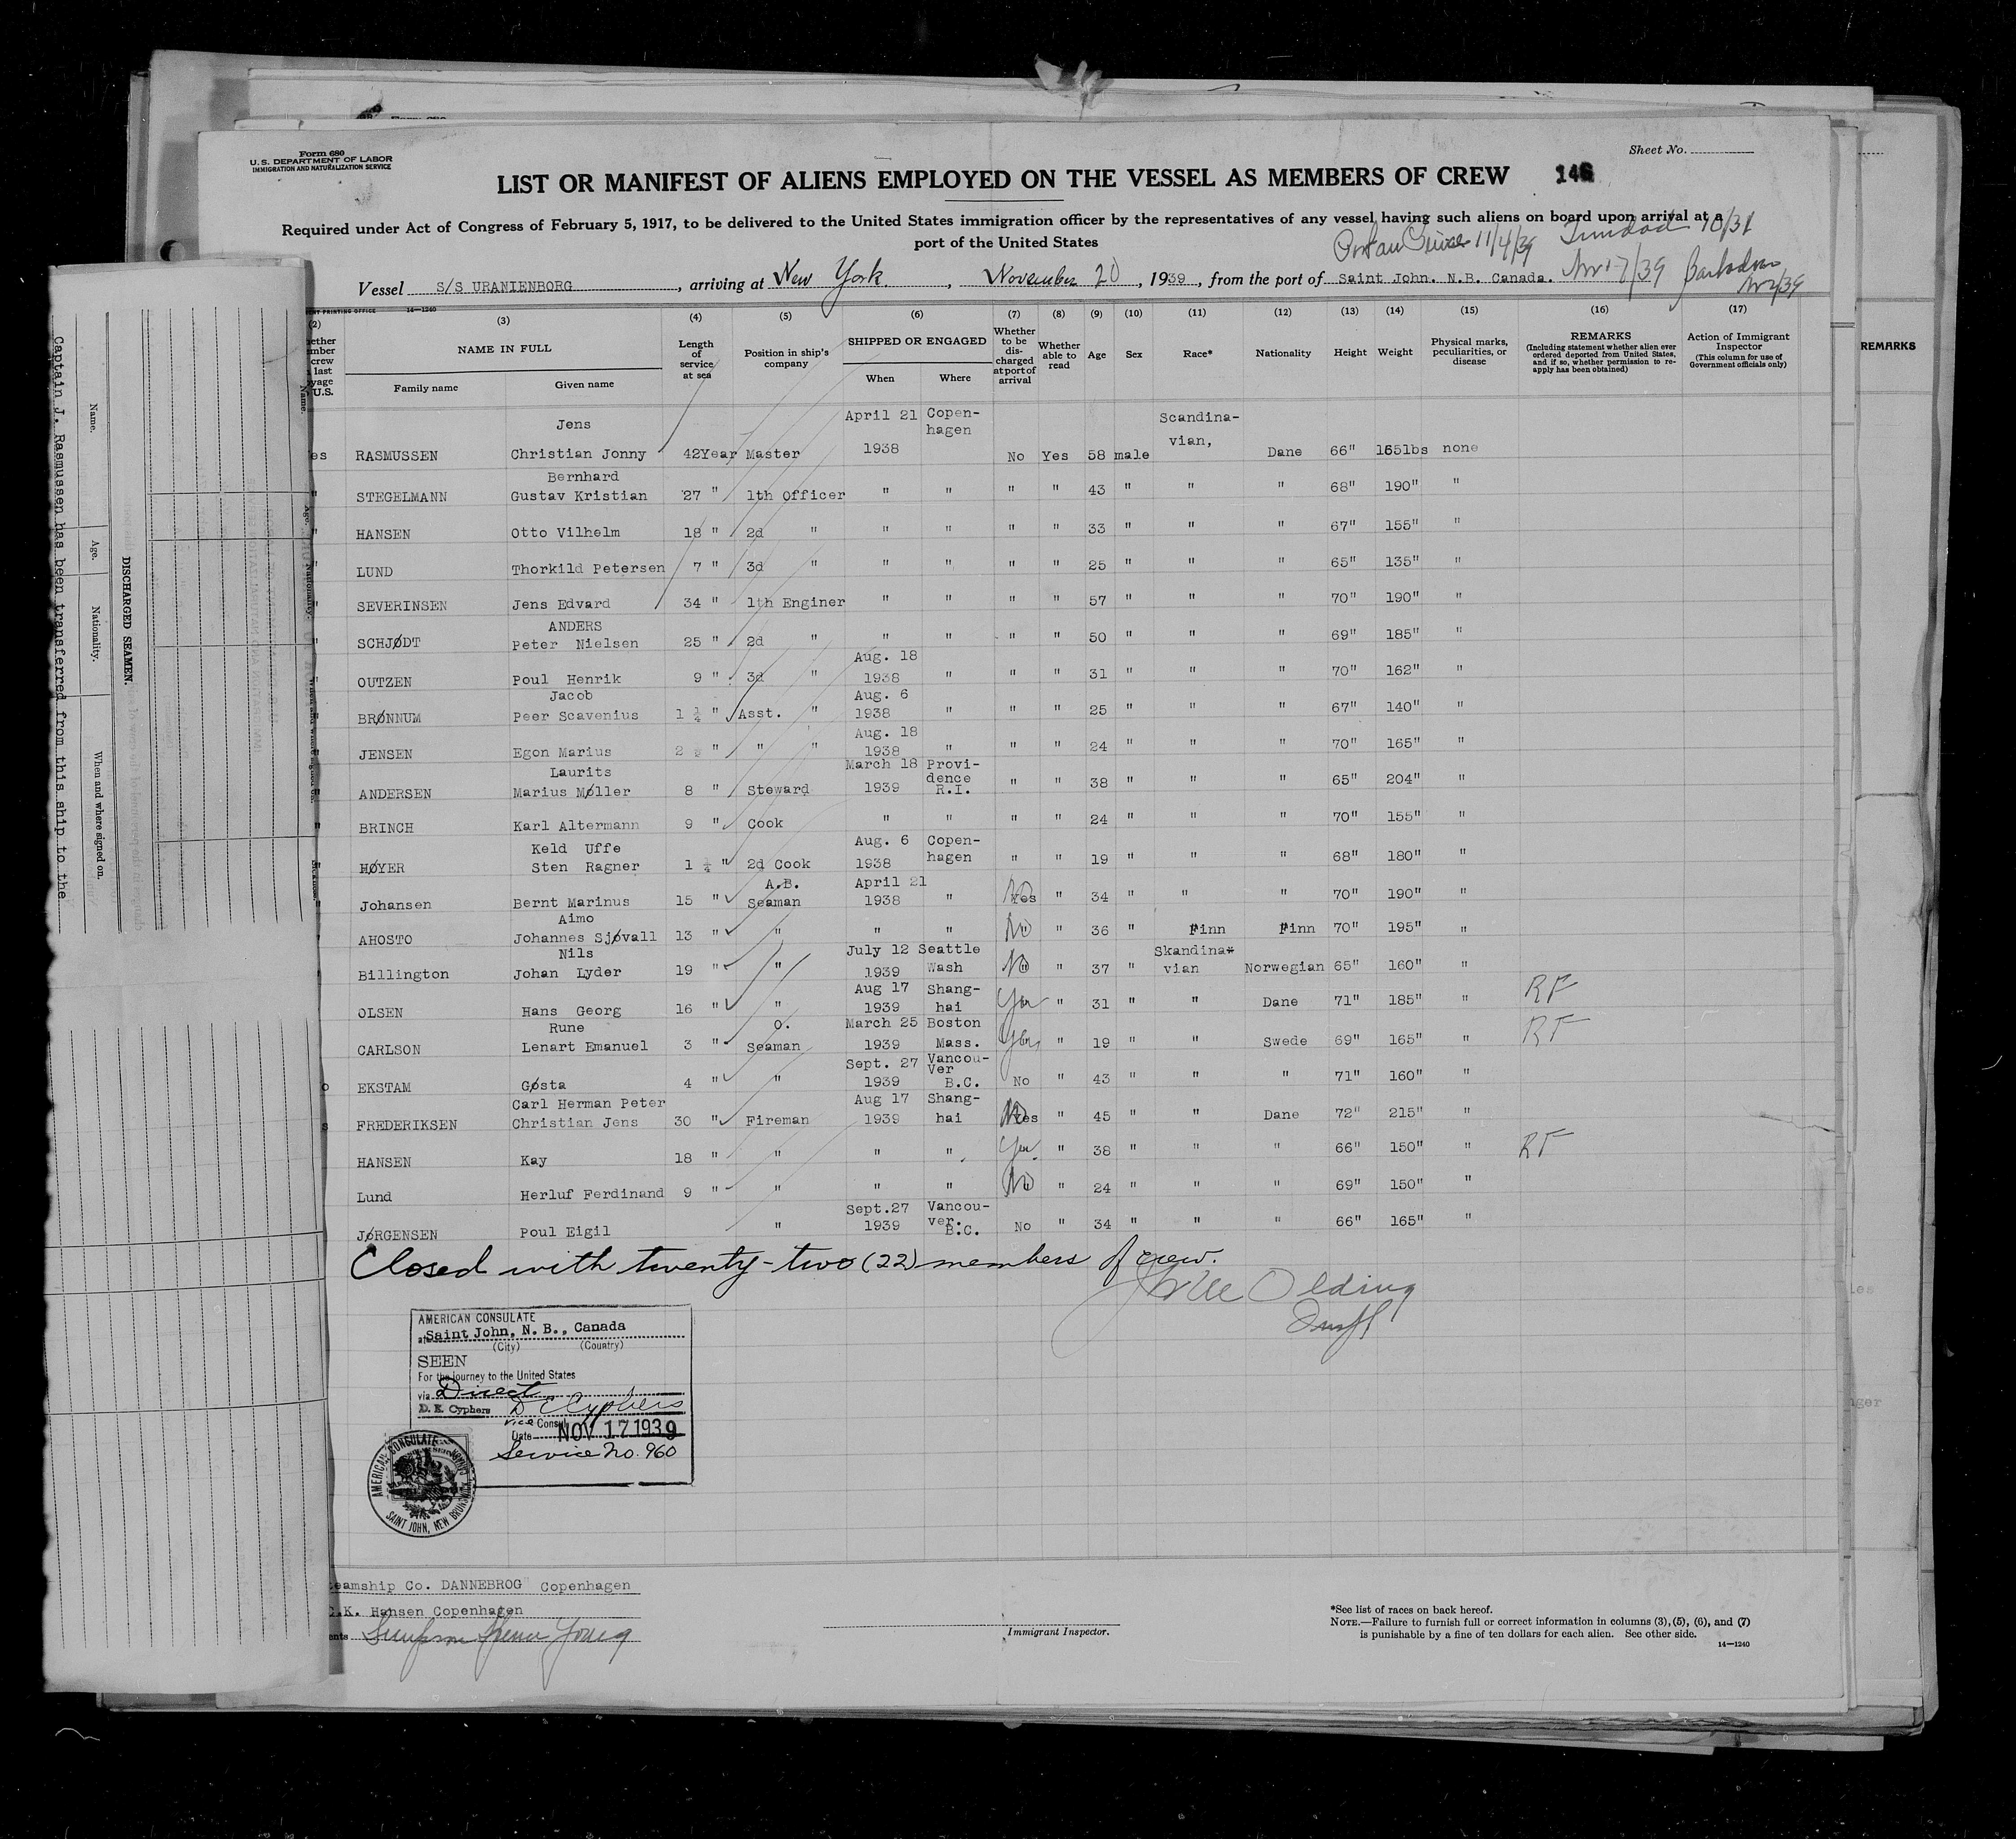 Form 680
U.S. DEPARTMENT OF LABOR
IMMIGRATION AND NATURALIZATION SERVICE
Sheet No.
LIST OR MANIFEST OF ALIENS EMPLOYED ON THE VESSEL AS MEMBERS OF CREW 146
Required under Act of Congress of February 5, 1917, to be delivered to the United States immigration officer by the representatives of any vessel having such aliens on board upon arrival at a
port of the United States
11/4/39 Trinidad 10/31
Vessel S/S URANIENBORG, arriving at New York, November 20, 1939, from the port of Saint John. N.B. Canada. Barbados
14—1240
(2) (3) (4) (5) (6) (7) (8) (9) (10) (11) (12) (13) (14) (15) (16) (17)
NAME IN FULL
Family name Given name
Length of service at sea
Position in ship's company
SHIPPED OR ENGAGED
When Where
Whether to be discharged at port of arrival
Whether able to read
Age
Sex
Race*
Nationality
Height
Weight
Physical marks, peculiarities, or disease
REMARKS
(Including statement whether alien ever ordered deported from United States, and if so, whether permission to reapply has been obtained)
Action of Immigrant Inspector
(This column for use of Government officials only)
REMARKS
Jens April 21 Copen- Scandina-
hagen
es RASMUSSEN Christian Jonny 42Year Master 1938 No Yes 58 male vian, Dane 66" 165lbs none
Bernhard
" STEGELMANN Gustav Kristian 27 " 1th Officer " " " " 43 " " " 68" 190" "
" HANSEN Otto Vilhelm 18 " 2d " " " " " 33 " " " 67" 155" "
" LUND Thorkild Petersen 7 " 3d " " " " " 25 " " " 65" 135" "
" SEVERINSEN Jens Edvard 34 " 1th Enginer " " " " 57 " " " 70" 190" "
ANDERS
" SCHJØDT Peter Nielsen 25 " 2d " " " " " 50 " " " 69" 185" "
Aug. 18
" OUTZEN Poul Henrik 9 " 3d " 1938 " " " 31 " " " 70" 162" "
Jacob Aug. 6
" BRØNNUM Peer Scavenius 1 ¼ " Asst. " 1938 " " " 25 " " " 67" 140" "
Aug. 18
" JENSEN Egon Marius 2 " " " 1938 " " " 24 " " " 70" 165" "
Laurits March 18 Provi-
dence
" ANDERSEN Marius Møller 8 " Steward 1939 R.I. " " 38 " " " 65" 204" "
" BRINCH Karl Altermann 9 " Cook " " " " 24 " " " 70" 155" "
Keld Uffe Aug. 6 Copen-
" HØYER Sten Ragner 1 ¼ " 2d Cook 1938 hagen " " 19 " " " 68" 180" "
A.B. April 21
" Johansen Bernt Marinus 15 " Seaman 1938 " Yes " 34 " " " 70" 190" "
Aimo
" AHOSTO Johannes Sjøvall 13 " " " " No " 36 " Finn Finn 70" 195" "
Nils July 12 Seattle Skandina*
Billington Johan Lyder 19 " " 1939 Wash No " 37 " vian Norwegian 65" 160" "
Aug 17 Shang-
OLSEN Hans Georg 16 " " 1939 hai Yes " 31 " " Dane 71" 185" " RF
Rune O. March 25 Boston
CARLSON Lenart Emanuel 3 " Seaman 1939 Mass. Yes " 19 " " Swede 69" 165" " RF
Sept. 27 Vancou-
ver
o EKSTAM Gøsta 4 " " 1939 B.C. No " 43 " " " 71" 160" "
Carl Herman Peter Aug 17 Shang-
s FREDERIKSEN Christian Jens 30 " Fireman 1939 hai No " 45 " " Dane 72" 215" "
HANSEN Kay 18 " " " " Yes " 38 " " " 66" 150" " RF
Lund Herluf Ferdinand 9 " " " " No " 24 " " " 69" 150" "
Sept.27 Vancou-
JØRGENSEN Poul Eigil " 1939 ver. B.C. No " 34 " " " 66" 165" "
Closed with twenty-two (22) members of crew.
Olding
AMERICAN CONSULATE
at Saint John, N. B., Canada
(City) (Country)
SEEN
For the journey to the United States
via Direct
D. E. Cyphers D E Cyphers
Vice Consul
Date NOV 17 1939
Service No. 960
AMERICAN CONSULATE
SAINT JOHN, NEW BRUNSWICK
eamship Co. DANNEBROG Copenhagen
C.K. Hansen Copenhagen
ents Simpson Spence Young
Immigrant Inspector.
*See list of races on back hereof.
NOTE.—Failure to furnish full or correct information in columns (3), (5), (6), and (7)
is punishable by a fine of ten dollars for each alien. See other side.
14—1240
Captain J. Rasmussen has been transferred from this ship to the
DISCHARGED SEAMEN.
Name. Age. Nationality. When and where signed on.